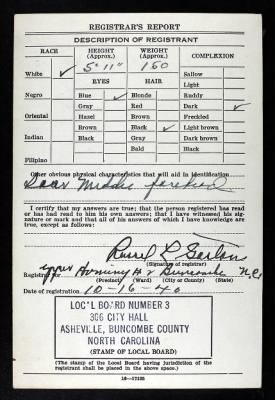 REGISTRAR'S REPORT
DESCRIPTION OF REGISTRANT
RACE HEIGHT (Approx.) WEIGHT (Approx.) COMPLEXION
5' 11" 160
White ✓ Sallow
EYES HAIR Light
Negro Blue ✓ Blonde Ruddy
Gray Red Dark ✓
Oriental Hazel Brown Freckled
Brown Black ✓ Light brown
Indian Black Gray Dark brown
Bald Black
Filipino
Other obvious physical characteristics that will aid in identification
Scar Middle forehead
I certify that my answers are true; that the person registered has read or has had read to him his own answers; that I have witnessed his signature or mark and that all of his answers of which I have knowledge are true, except as follows:
(Signature of registrar)
Registrar for Upper Hominy # 2 Buncombe N.C.
(Precinct) (Ward) (City or County) (State)
Date of registration 10-16-40
LOCAL BOARD NUMBER 3
306 CITY HALL
ASHEVILLE, BUNCOMBE COUNTY
NORTH CAROLINA
(STAMP OF LOCAL BOARD)
(The stamp of the Local Board having jurisdiction of the registrant shall be placed in the above space.)
16—17125